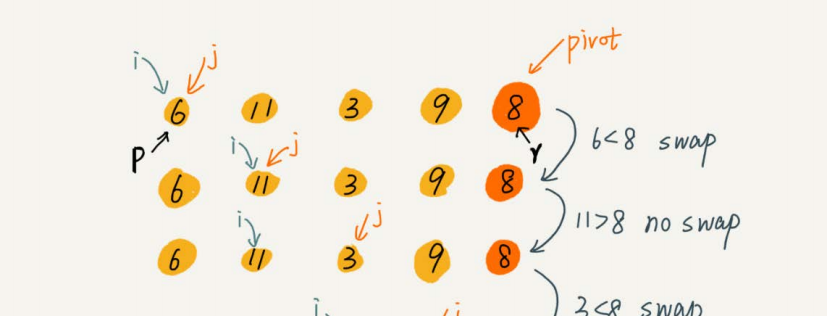 pivot
i j
6 11 3 9 8
p r
6<8 swap
i j
6 11 3 9 8
11>8 no swap
i j
6 11 3 9 8
i j
3<8 swap